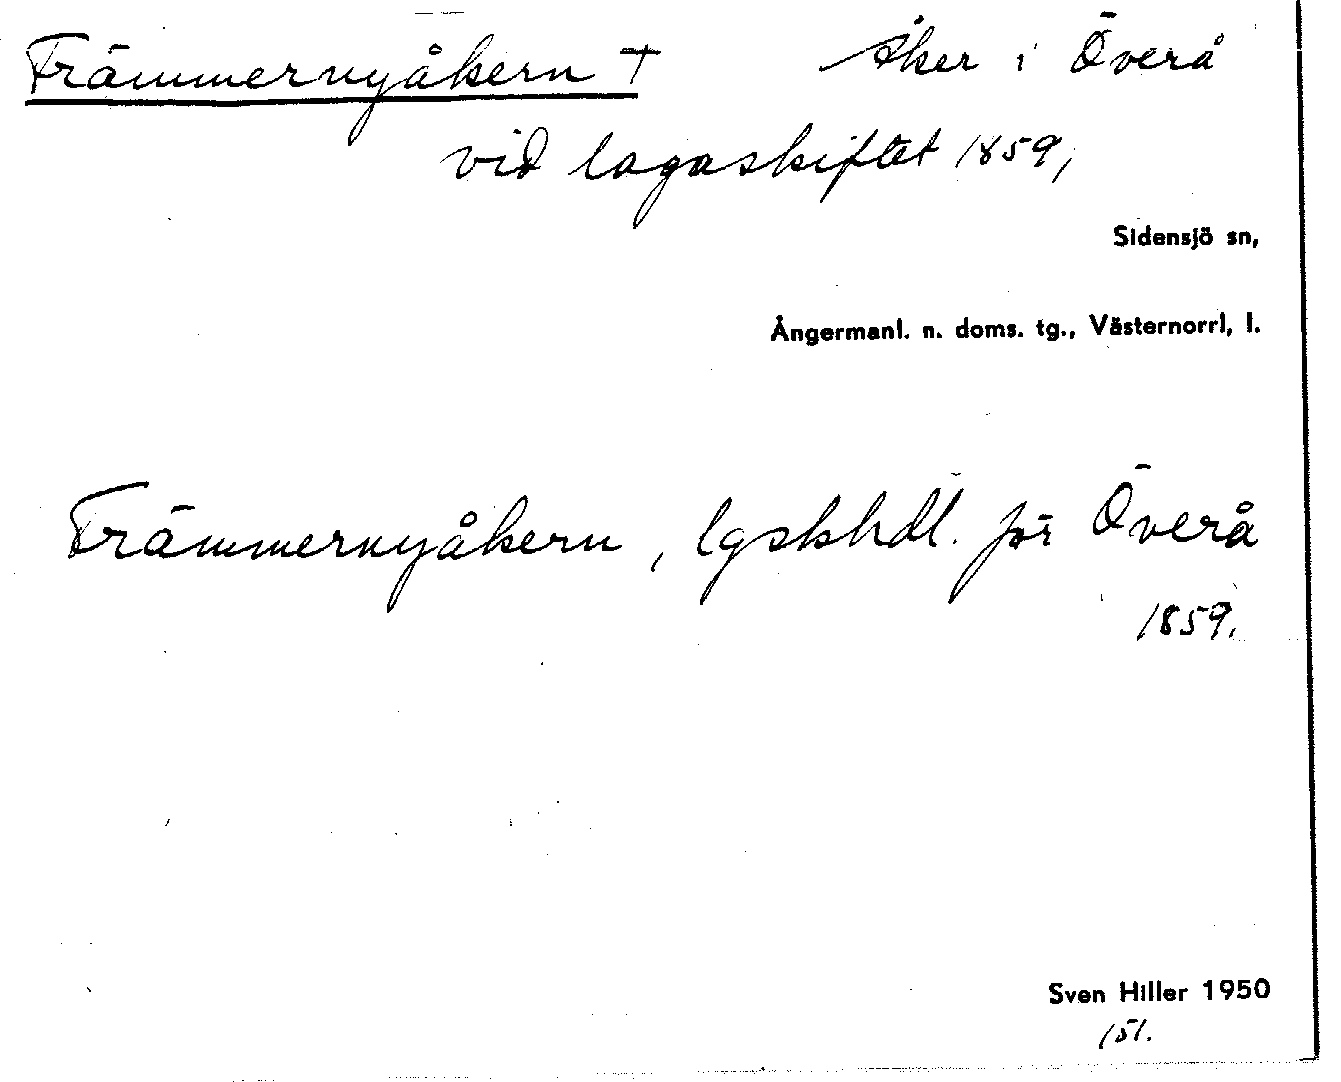 Främmernyåkern † åker i Överå
vid lagaskiftet 1859,
Sidensjö sn,
Ångermanl. n. doms. tg., Västernorrl, l.
Främmernyåkern, lgskhdl. för Överå
1859.
Sven Hiller 1950
151.